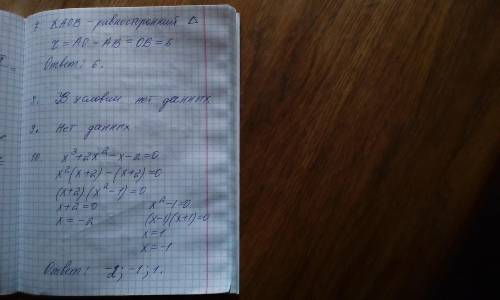 7. ΔAOB - равносторонний Δ.
r = AO = AB = OB = 6
Ответ: 6.
8. В условии нет данных
9. Нет данных
10. x³+2x²-x-2=0
x²(x+2)-(x+2)=0
(x+2)(x²-1)=0
x+2=0 x²-1=0
x=-2 (x-1)(x+1)=0
x=1
x=-1
Ответ: -2; -1; 1.